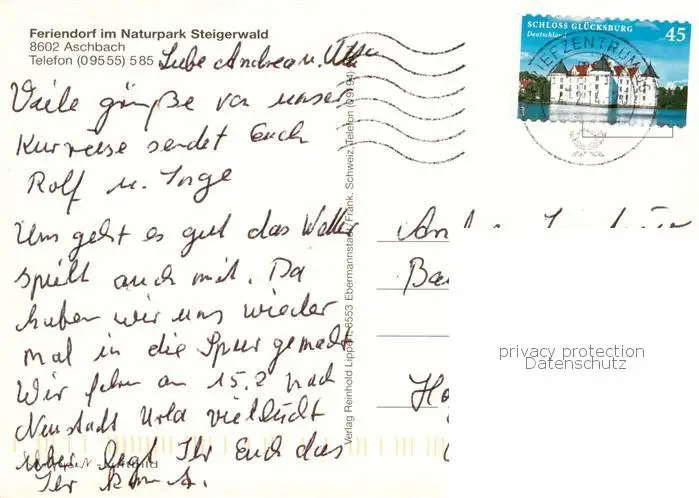 Feriendorf im Naturpark Steigerwald
8602 Aschbach
Telefon (0 95 55) 5 85
Liebe Andrea u.
Viele grüße von unser
Kurreise sendet Euch
Rolf u. Inge
Uns geht es gut das Wetter
spielt auch mit. Da
haben wir uns wieder
mal in die Spur gemacht
Wir fahren am 15.2 nach
Neustadt vielleicht
über legt Ihr Euch das
Ihr kommt.
Verlag Reinhold Lippert, 8553 Ebermannstadt/Fränk. Schweiz, Telefon (0 91 94)
SCHLOSS GLÜCKSBURG
Deutschland
45
BRIEFZENTRUM
Ba
privacy protection
Datenschutz